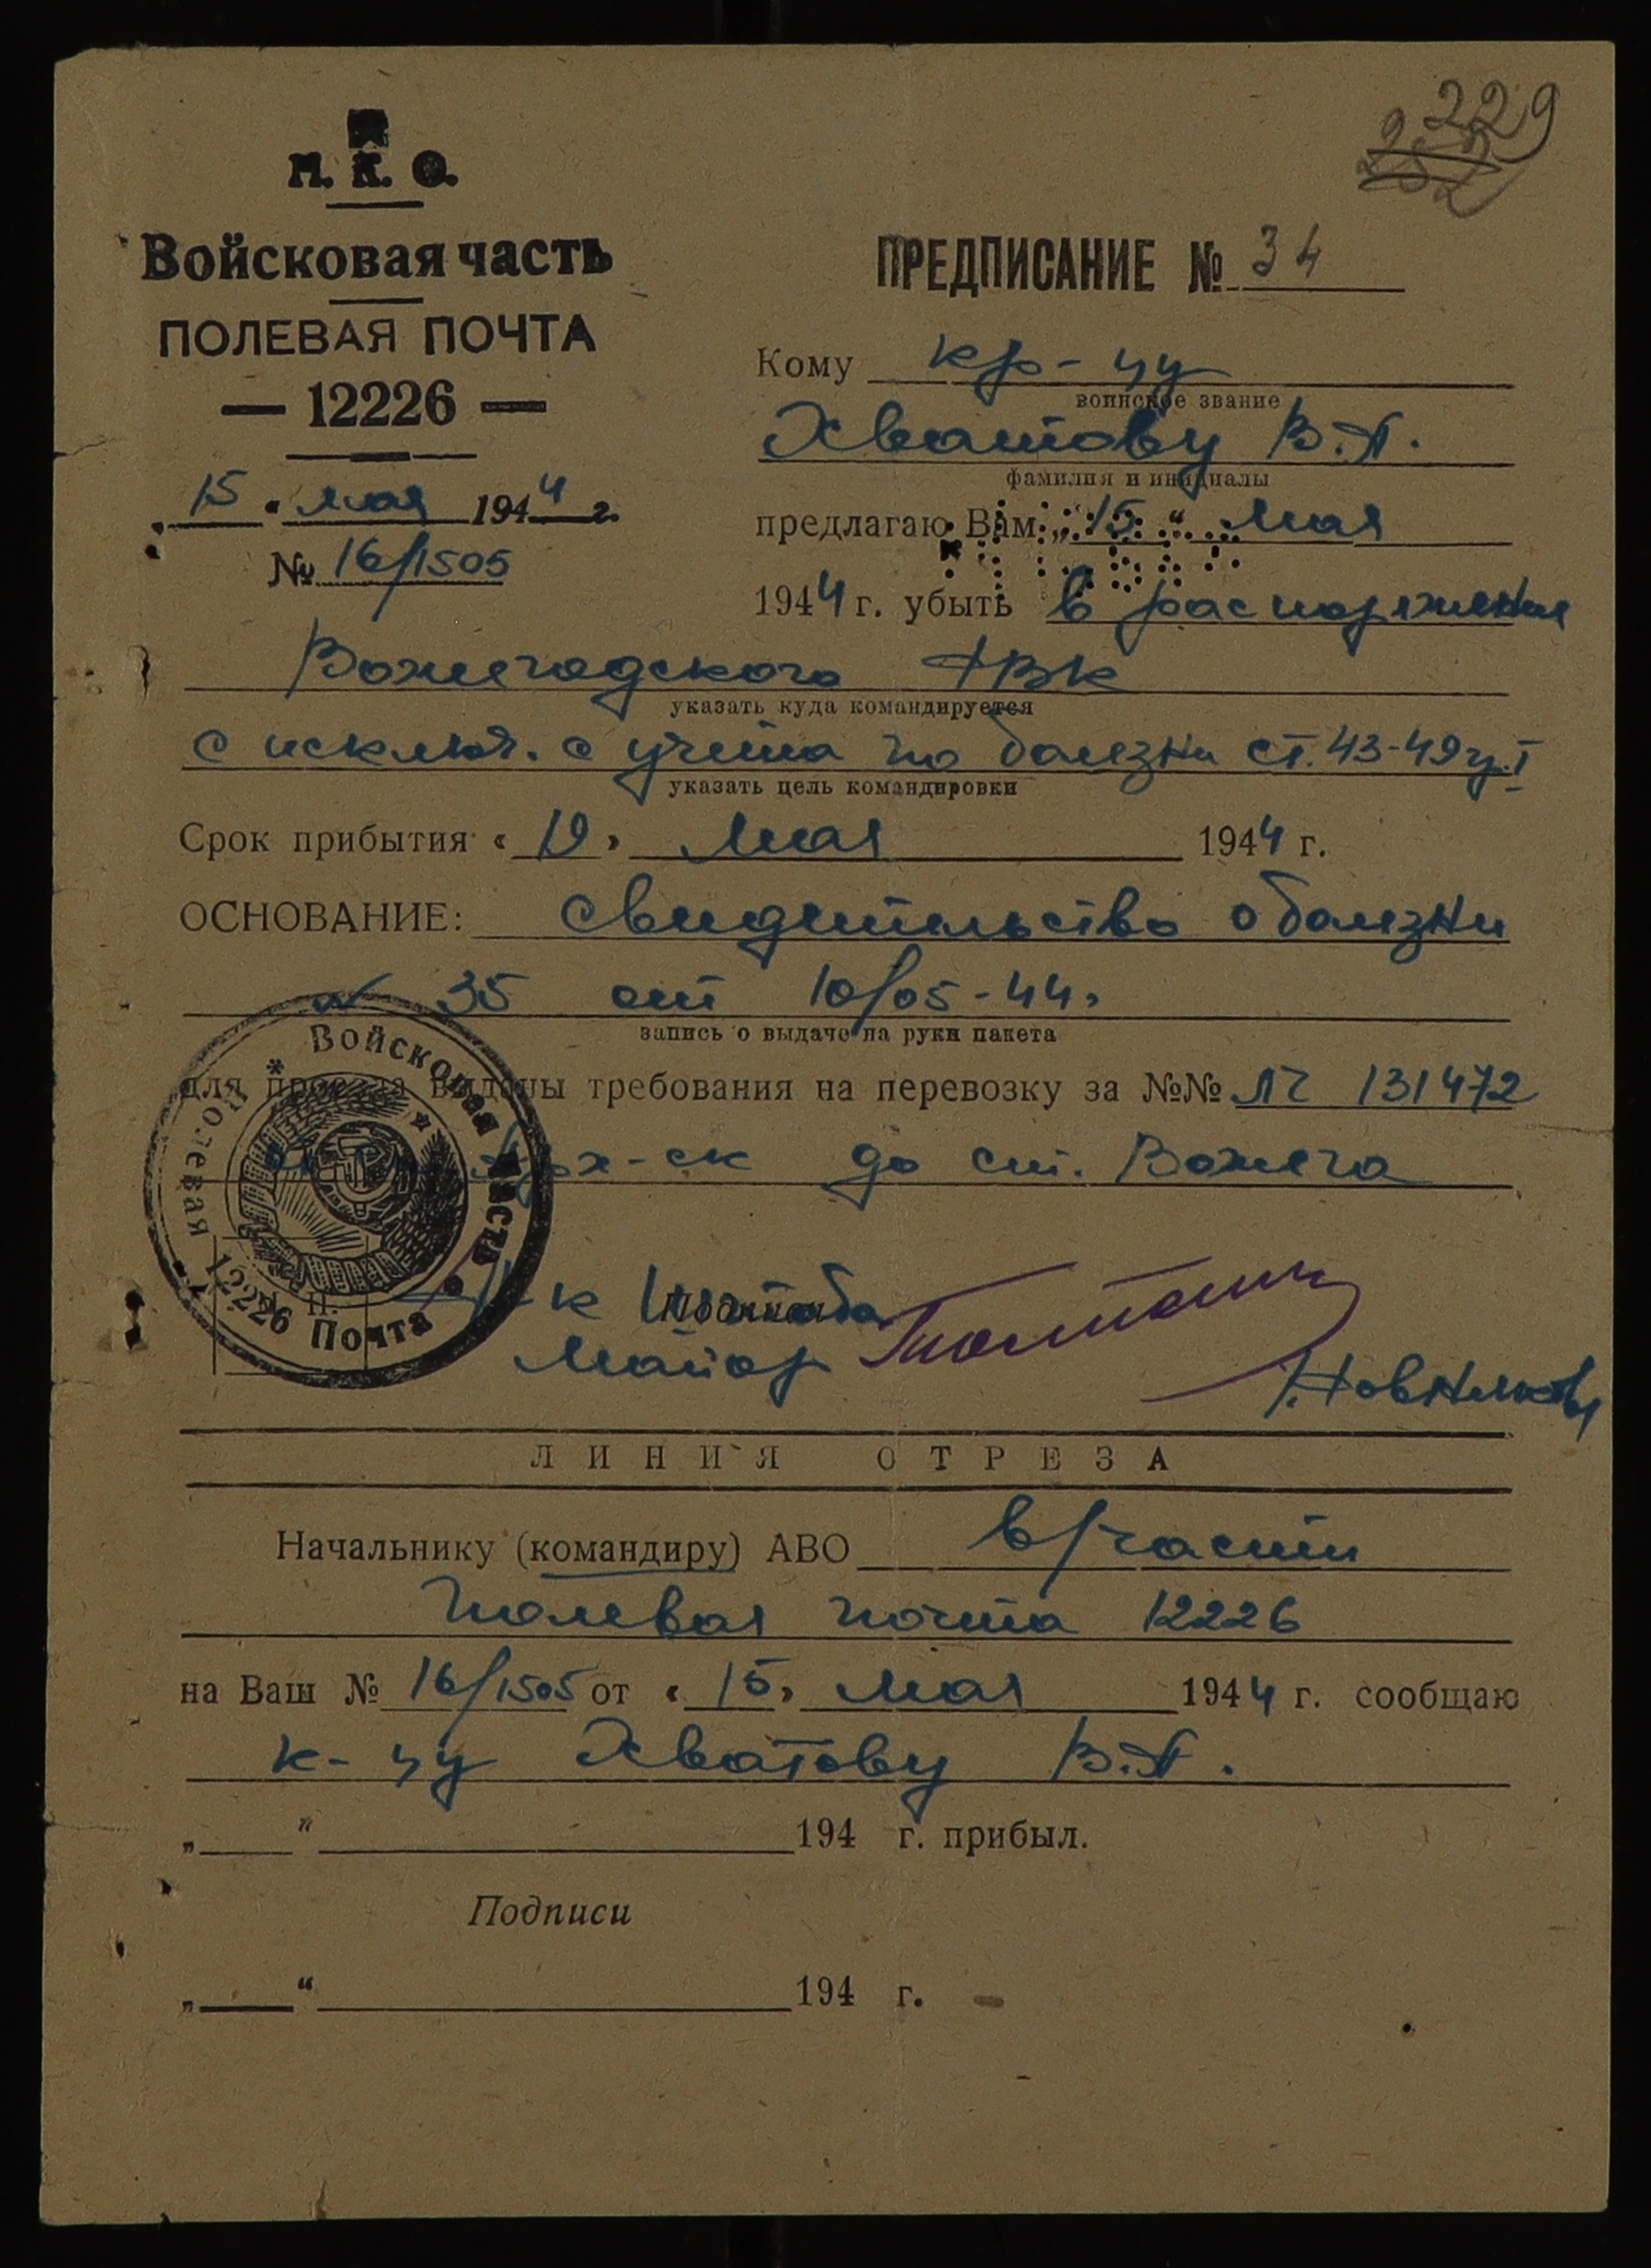 229
Н. К. О.
Войсковая часть
ПОЛЕВАЯ ПОЧТА
— 12226 —
„ 15 “ мая 1944 г.
№ 16/1505
ПРЕДПИСАНИЕ № 34
Кому кр-цу
воинское звание
Хватову В.П.
фамилия и инициалы
предлагаю Вам „ 15 “ мая
1944 г. убыть в распоряжения
Вожегодского РВК
указать куда командируется
с исключ. с учета по болезни ст. 43-49 гр. I
указать цель командировки
Срок прибытия « 19 » мая 1944 г.
ОСНОВАНИЕ: свидетельство о болезни
№ 35 от 10/05-44г
запись о выдаче на руки пакета
для проезда выданы требования на перевозку за №№ ЛЧ 131472
Арх-ск до ст. Вожега
Войсковая часть
Полевая Почта 12226
М. П.
Н-к Штаба
Майор
ЛИНИЯ ОТРЕЗА
Начальнику (командиру) АВО в/части
полевая почта 12226
на Ваш № 16/1505 от « 15 » мая 1944 г. сообщаю
к-цу Хватову В.П.
„ “ 194 г. прибыл.
Подписи
„ “ 194 г.